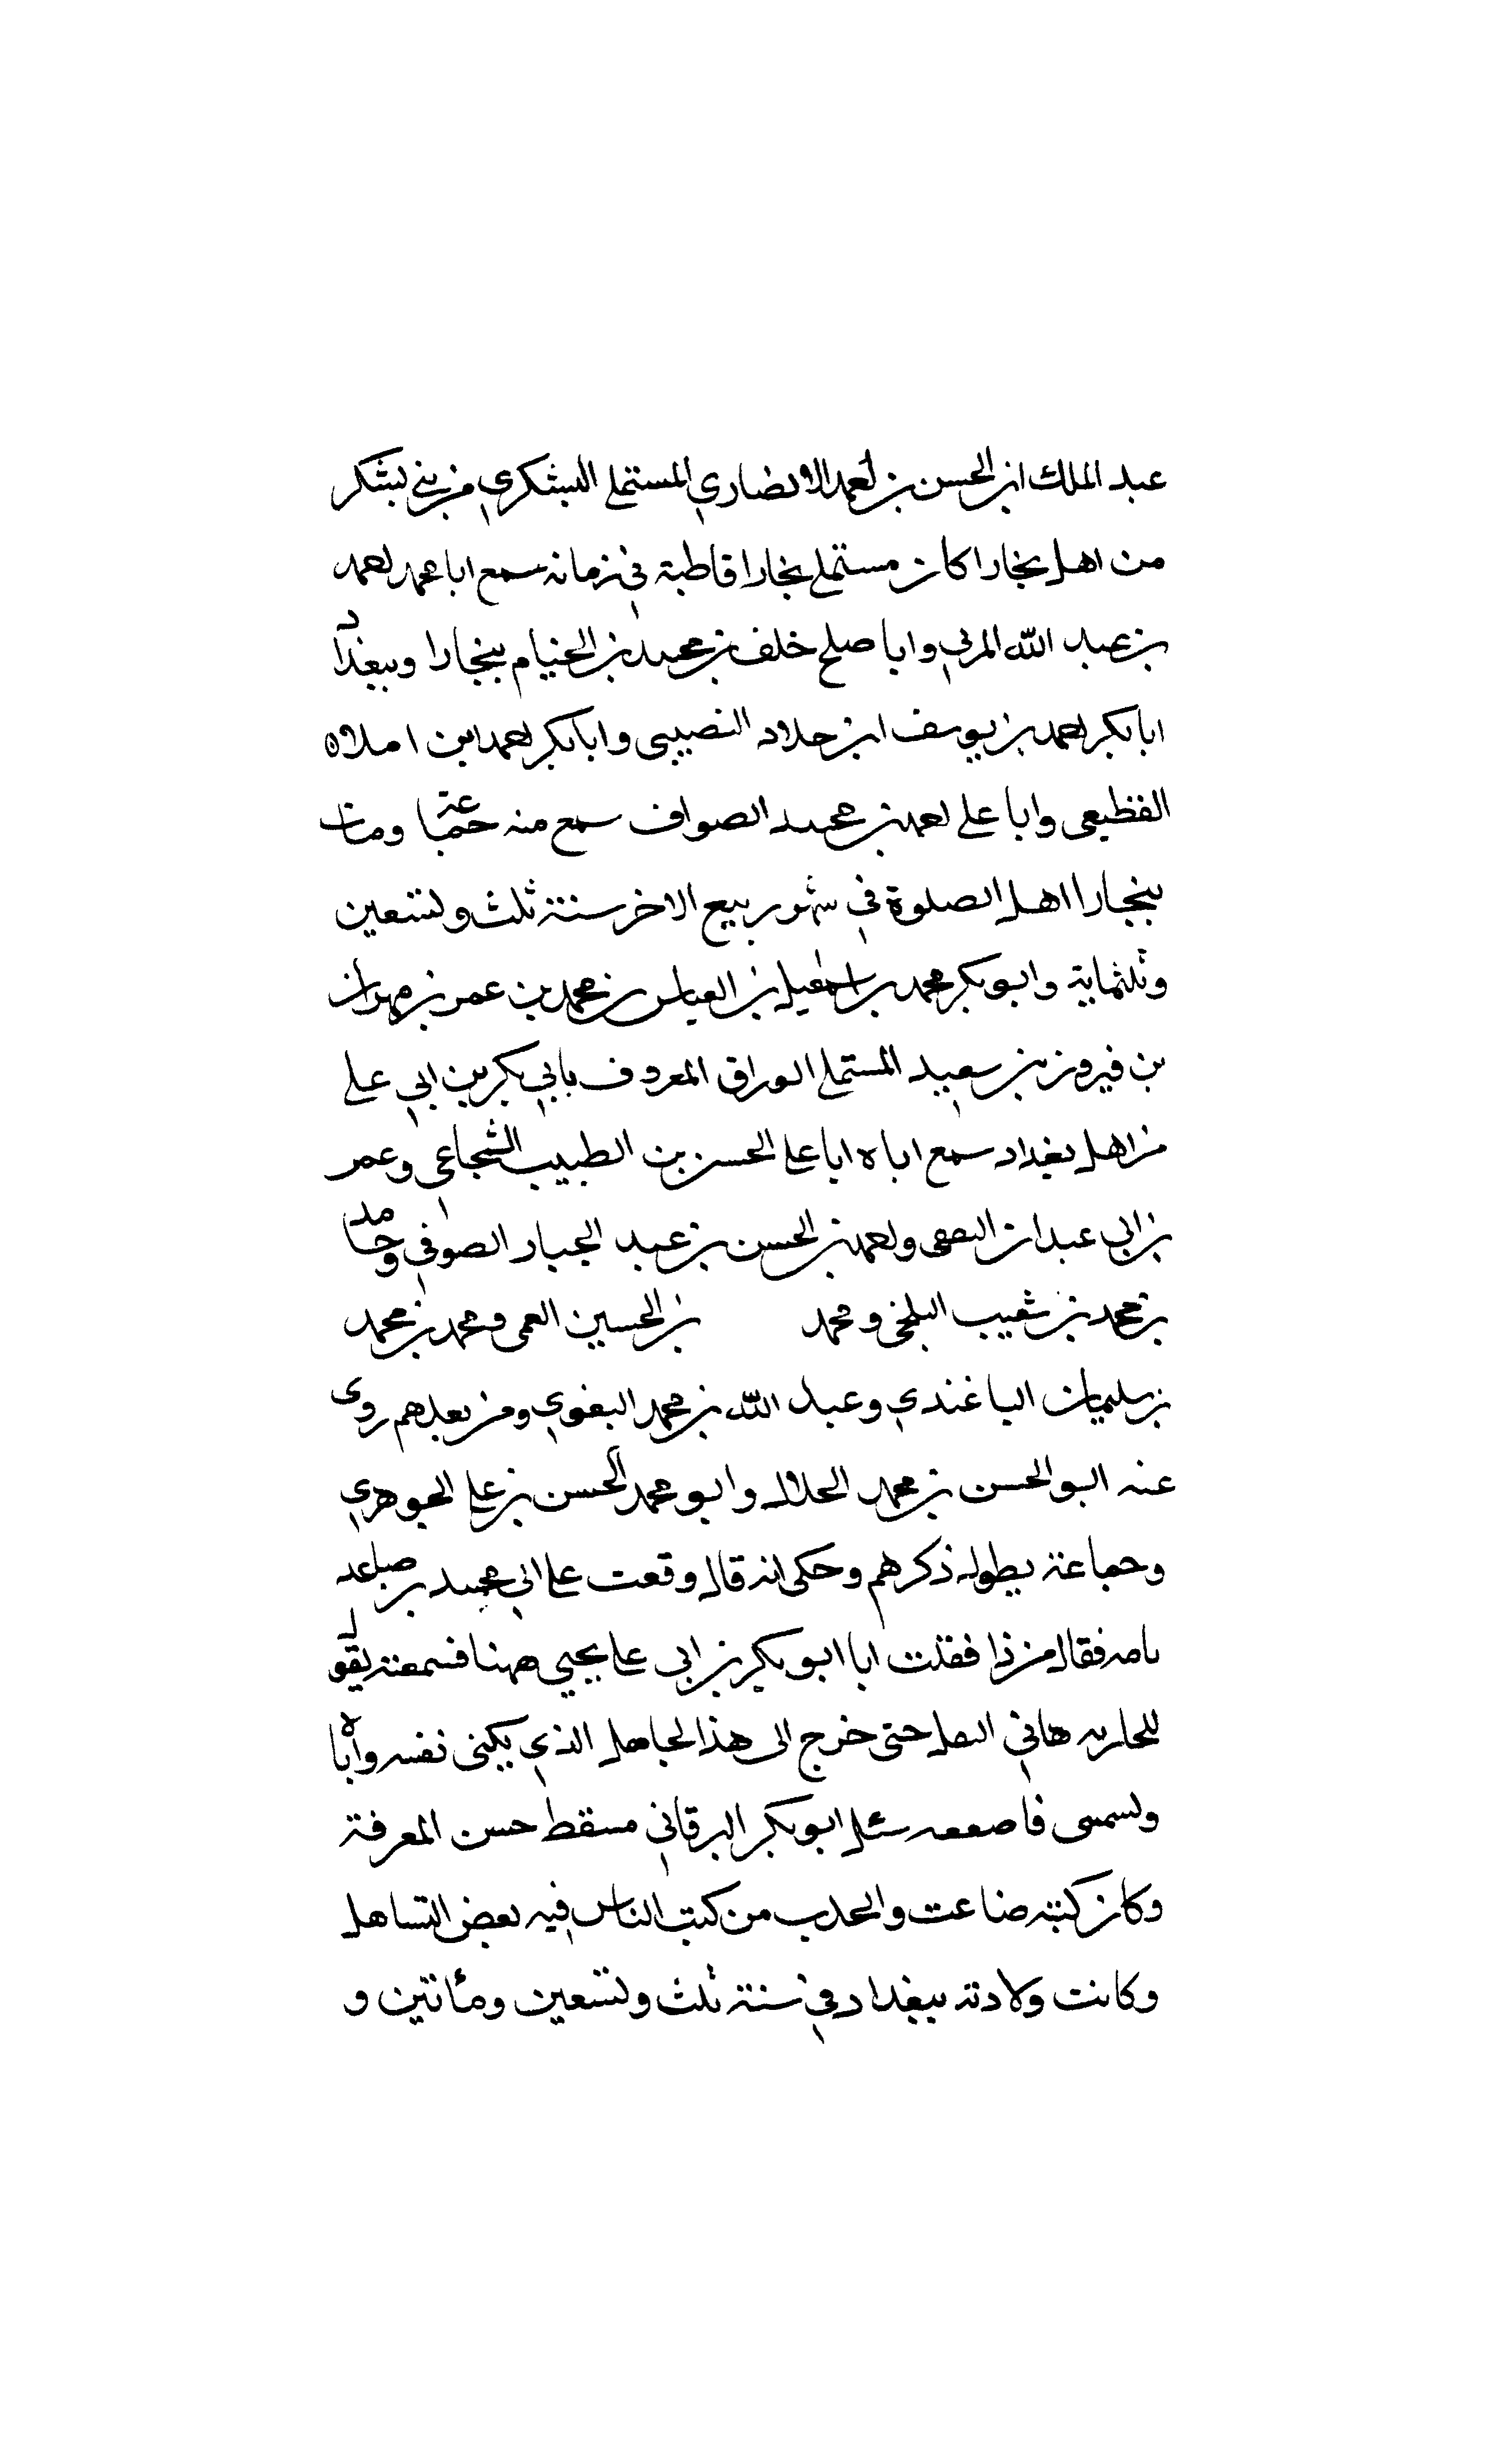 عبد الملك ابن الحسن بن احمد الانصاري المستملي اليشكري من بني يشكر
من اهل بخارا كان مستملي بخارا قاطبة في زمانه سمع ابا محمد احمد
بن عبد الله المزني وابا صلح خلف بن محمد بن الخيام ببخارا وببغداد
ابا بكر احمد بن يوسف ابن خلاد النصيبي وابا بكر احمد ابن املاه
القطيعي وابا علي احمد بن محمد الصواف سمع منه جماعة ومات
ببخارا اهل الصلوة في شهر ربيع الاخر سنة ثلث وتسعين
وثلثماية وابو بكر محمد بن اسمعيل بن العباس بن محمد بن عمر بن مهران
بن فيروز بن سعيد المستملي الوراق المعروف بابي بكر بن ابي علي
من اهل بغداد سمع اباه ابا علي الحسن بن الطبيب الشجاعي وعمر
بن ابي عبدان واحمد بن الحسن بن عبد الجبار الصوفي وحامد
بن محمد بن شعيب البلخي ومحمد بن الحسين العمي ومحمد بن محمد
بن سليمان الباغندي وعبد الله بن محمد البغوي ومن بعدهم روى
عنه ابو الحسن بن محمد الخلال وابو محمد الحسن بن علي الجوهري
وجماعة يطول ذكرهم وحكى انه قال وقعت علي ابي محمد بن صاعد
فقال من ذا فقلت ابا ابو بكر بن ابي علي يحيى ههنا فسمعته يقول
هاتي النعل حتى خرج الى هذا الجاهل الذي يكنى نفسه واباه
سئل ابو بكر البرقاني مسقط حسن المعرفة
وكان كتبه ضاعت من كتب الناس فيه بعض التساهل
وكانت ولادته ببغداد في سنة ثلث وتسعين ومأتين و